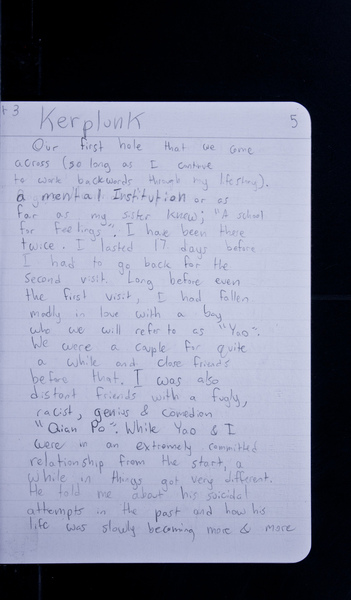 # 3
Kerplunk
5
Our first hole that we come
across (so long as I contuve
to work backwords through my lifestory).
a mental Institution or as
far as my sister knew; "A school
for feelings". I have been there
twice. I lasted 17 days before
I had to go back for the
second visit. Long before even
the first visit, I had fallen
madly in love with a boy
who we will refer to as "Yao".
We were a couple for quite
a while and close friends
before that. I was also
distant friends with a fugly,
racist, genius & comedian
"Qian Po". While Yao & I
were in an extremely committed
relationship from the start, a
while in things got very different.
He told me about his suicidal
attempts in the past and how his
life was slowly becoming more & more